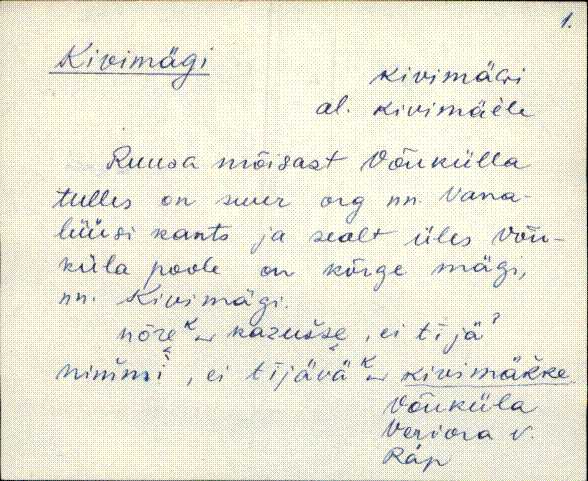 1.
Kivimägi
kivimäGi
al. kivimäele
Ruusa mõisast Võukülla
tulles on suur org nn. Vana-
lüüsi kants ja sealt üles Võu-
küla poole on kõrge mägi,
nn. Kivimägi.
nōre kazušše, ei tījä
nimmi, ei tījävä kivimäkke
Võuküla
Veriora v.
Räp